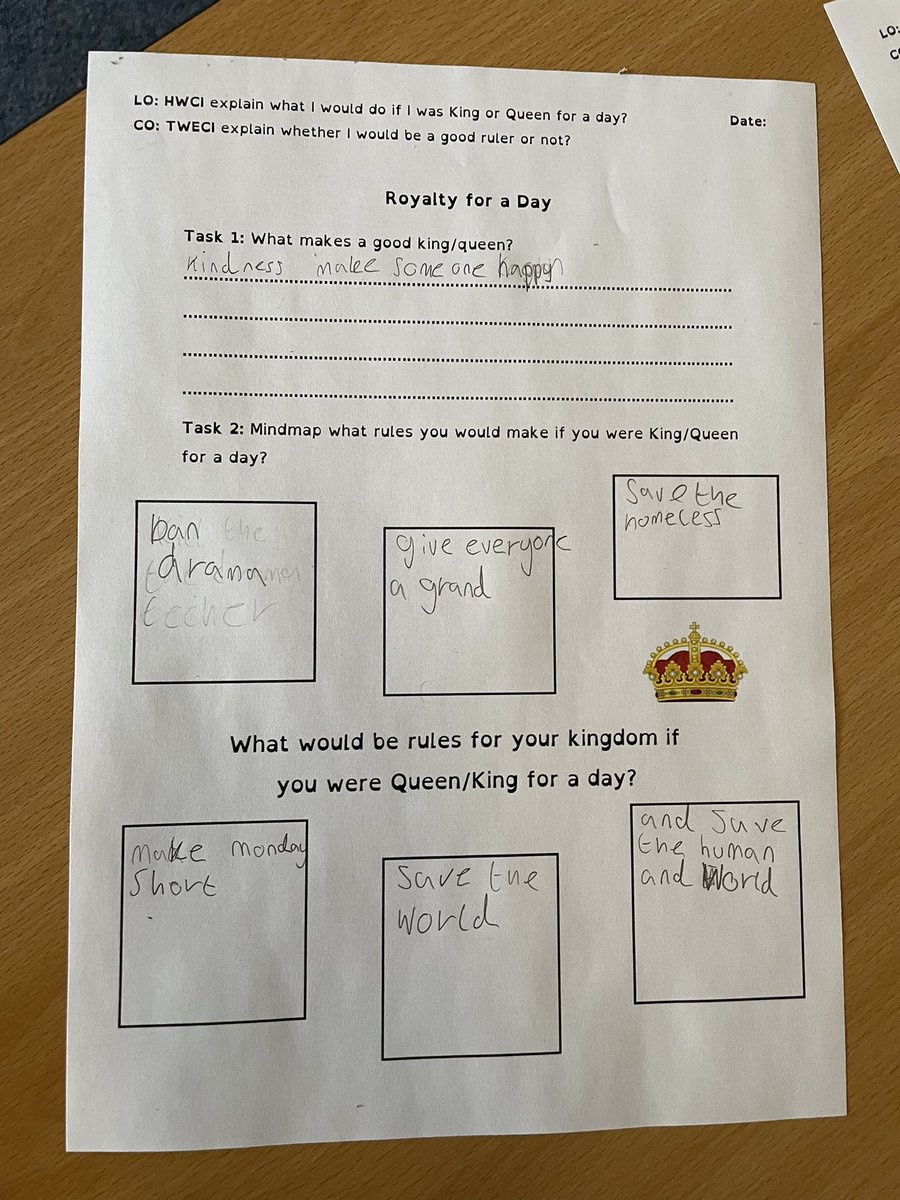 LO: HWCI explain what I would do if I was King or Queen for a day?
Date:
CO: TWECI explain whether I would be a good ruler or not?
Royalty for a Day
Task 1: What makes a good king/queen?
kindness make someone happy
Task 2: Mindmap what rules you would make if you were King/Queen
for a day?
ban the
drama
techer
give everyone
a grand
Save the
homeless
What would be rules for your kingdom if
you were Queen/King for a day?
make monday
short
save the
world
and save
the human
and World
LO: